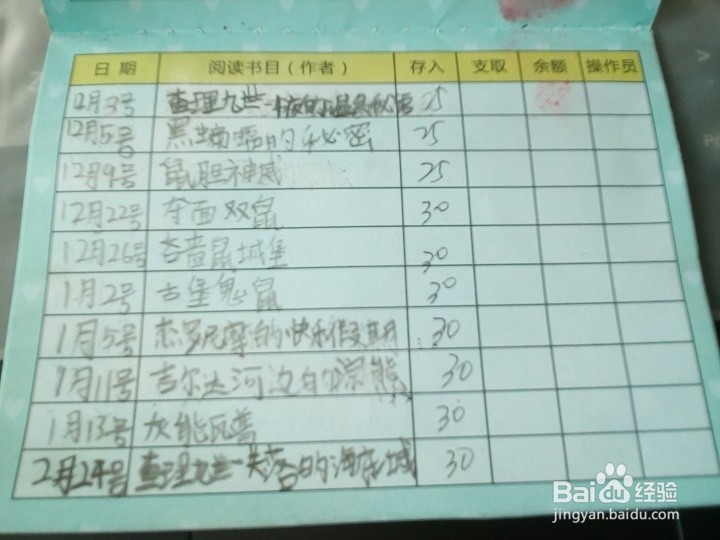 日期 阅读书目(作者) 存入 支取 余额 操作员
12月3号 查理九世 25
12月5号 黑蝙蝠的秘密 25
12月9号 鼠胆神威 25
12月22号 夺面双鼠 30
12月26号 吝啬鼠城堡 30
1月2号 古堡鬼鼠 30
1月5号 杰罗尼摩的快乐假期 30
1月11号 吉尔达河边的棕熊 30
1月13号 灰熊瓦普 30
2月24号 查理九世-失落的海底城 30
Baidu经验
jingyan.baidu.com